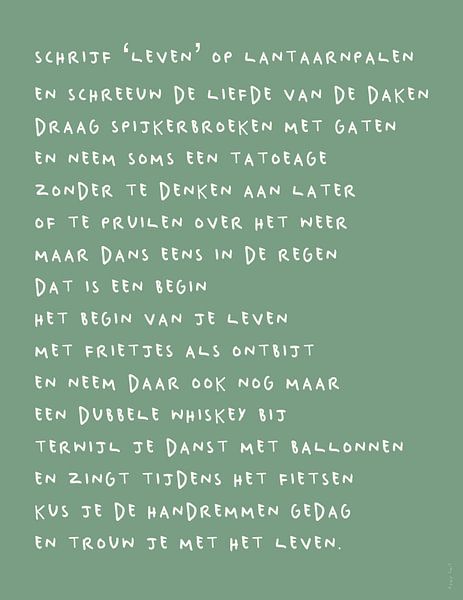 SCHRIJF ‘LEVEN’ OP LANTAARNPALEN
EN SCHREEUW DE LIEFDE VAN DE DAKEN
DRAAG SPIJKERBROEKEN MET GATEN
EN NEEM SOMS EEN TATOEAGE
ZONDER TE DENKEN AAN LATER
OF TE PRUILEN OVER HET WEER
MAAR DANS EENS IN DE REGEN
DAT IS EEN BEGIN
HET BEGIN VAN JE LEVEN
MET FRIETJES ALS ONTBIJT
EN NEEM DAAR OOK NOG MAAR
EEN DUBBELE WHISKEY BIJ
TERWIJL JE DANST MET BALLONNEN
EN ZINGT TIJDENS HET FIETSEN
KUS JE DE HANDREMMEN GEDAG
EN TROUW JE MET HET LEVEN.